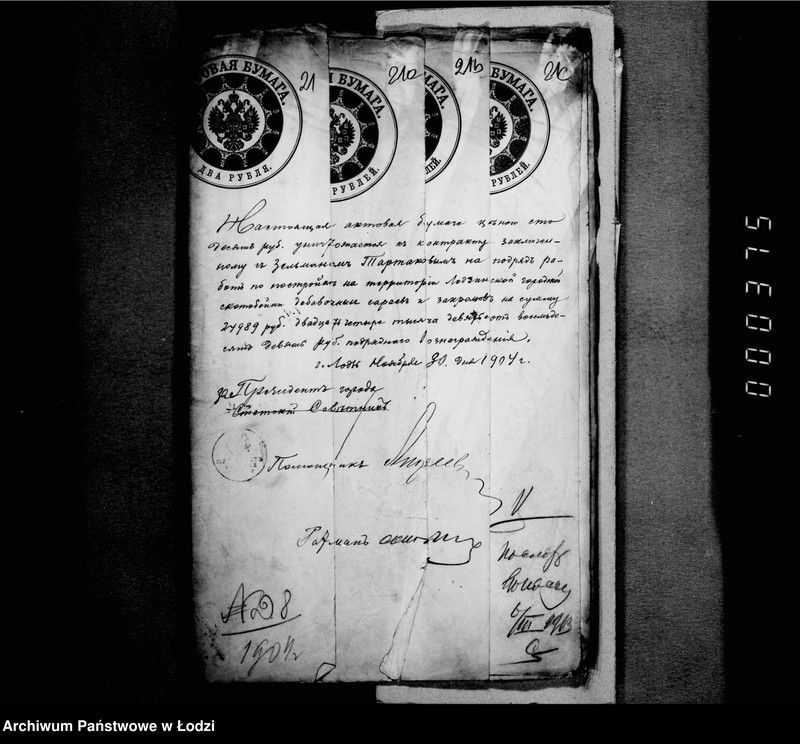 21
21а
21b
21c
ОВАЯ БУМАГА.
ДВА РУБЛЯ.
Я БУМАГА.
РУБЛЕЙ.
ЛЕЙ.
БУМАГА.
РУБЛЕЙ.
Настоящая актовая бумага цѣною сто
десять руб. уничтожается къ контракту заключен-
ному съ Зельманомъ Тартаковымъ на подрядъ ра-
ботъ по постройкѣ на территоріи Лодзинской городской
скотобойни добавочныхъ сараевъ и закромовъ на сумму
24989 руб. двадцать четыре тысяча девятьсотъ восемьде-
сятъ девять руб. подряднаго вознагражденія.
г. Лодзь Ноября 30 дня 1904 г.
Президентъ города
Статскій Совѣтникъ
Помощникъ
Ратманъ
№ 8
1904 г
V
III 1913
000375
Archiwum Państwowe w Łodzi